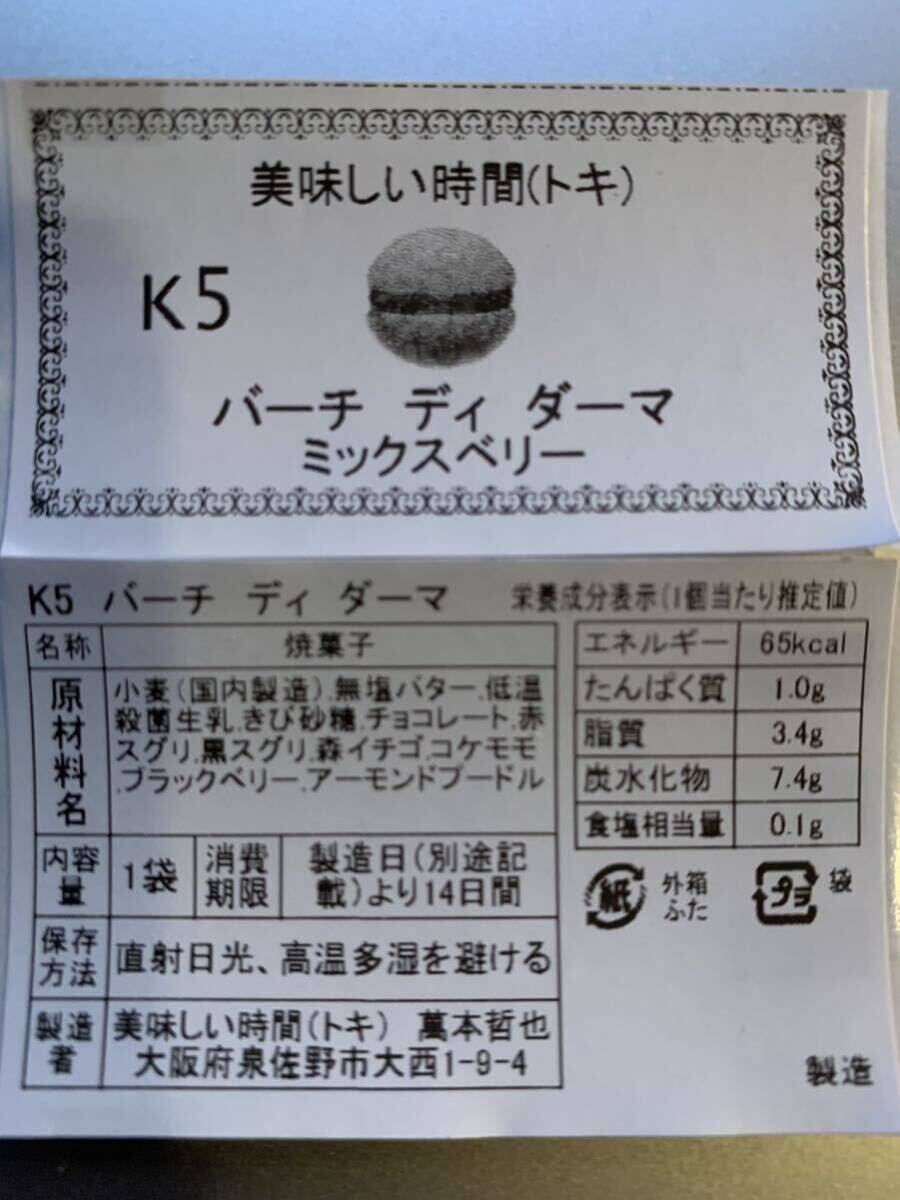 美味しい時間(トキ)
K5
バーチ ディ ダーマ
ミックスベリー
K5 バーチ ディ ダーマ
栄養成分表示(1個当たり推定値)
名称 焼菓子
原材料名 小麦(国内製造),無塩バター,低温
殺菌生乳,きび砂糖,チョコレート,赤
スグリ,黒スグリ,森イチゴ,コケモモ
,ブラックベリー,アーモンドプードル
内容量 1袋 消費期限 製造日(別途記
載)より14日間
保存方法 直射日光、高温多湿を避ける
製造者 美味しい時間(トキ) 萬本哲也
大阪府泉佐野市大西1-9-4
エネルギー 65kcal
たんぱく質 1.0g
脂質 3.4g
炭水化物 7.4g
食塩相当量 0.1g
紙 外箱
ふた
プラ 袋
製造